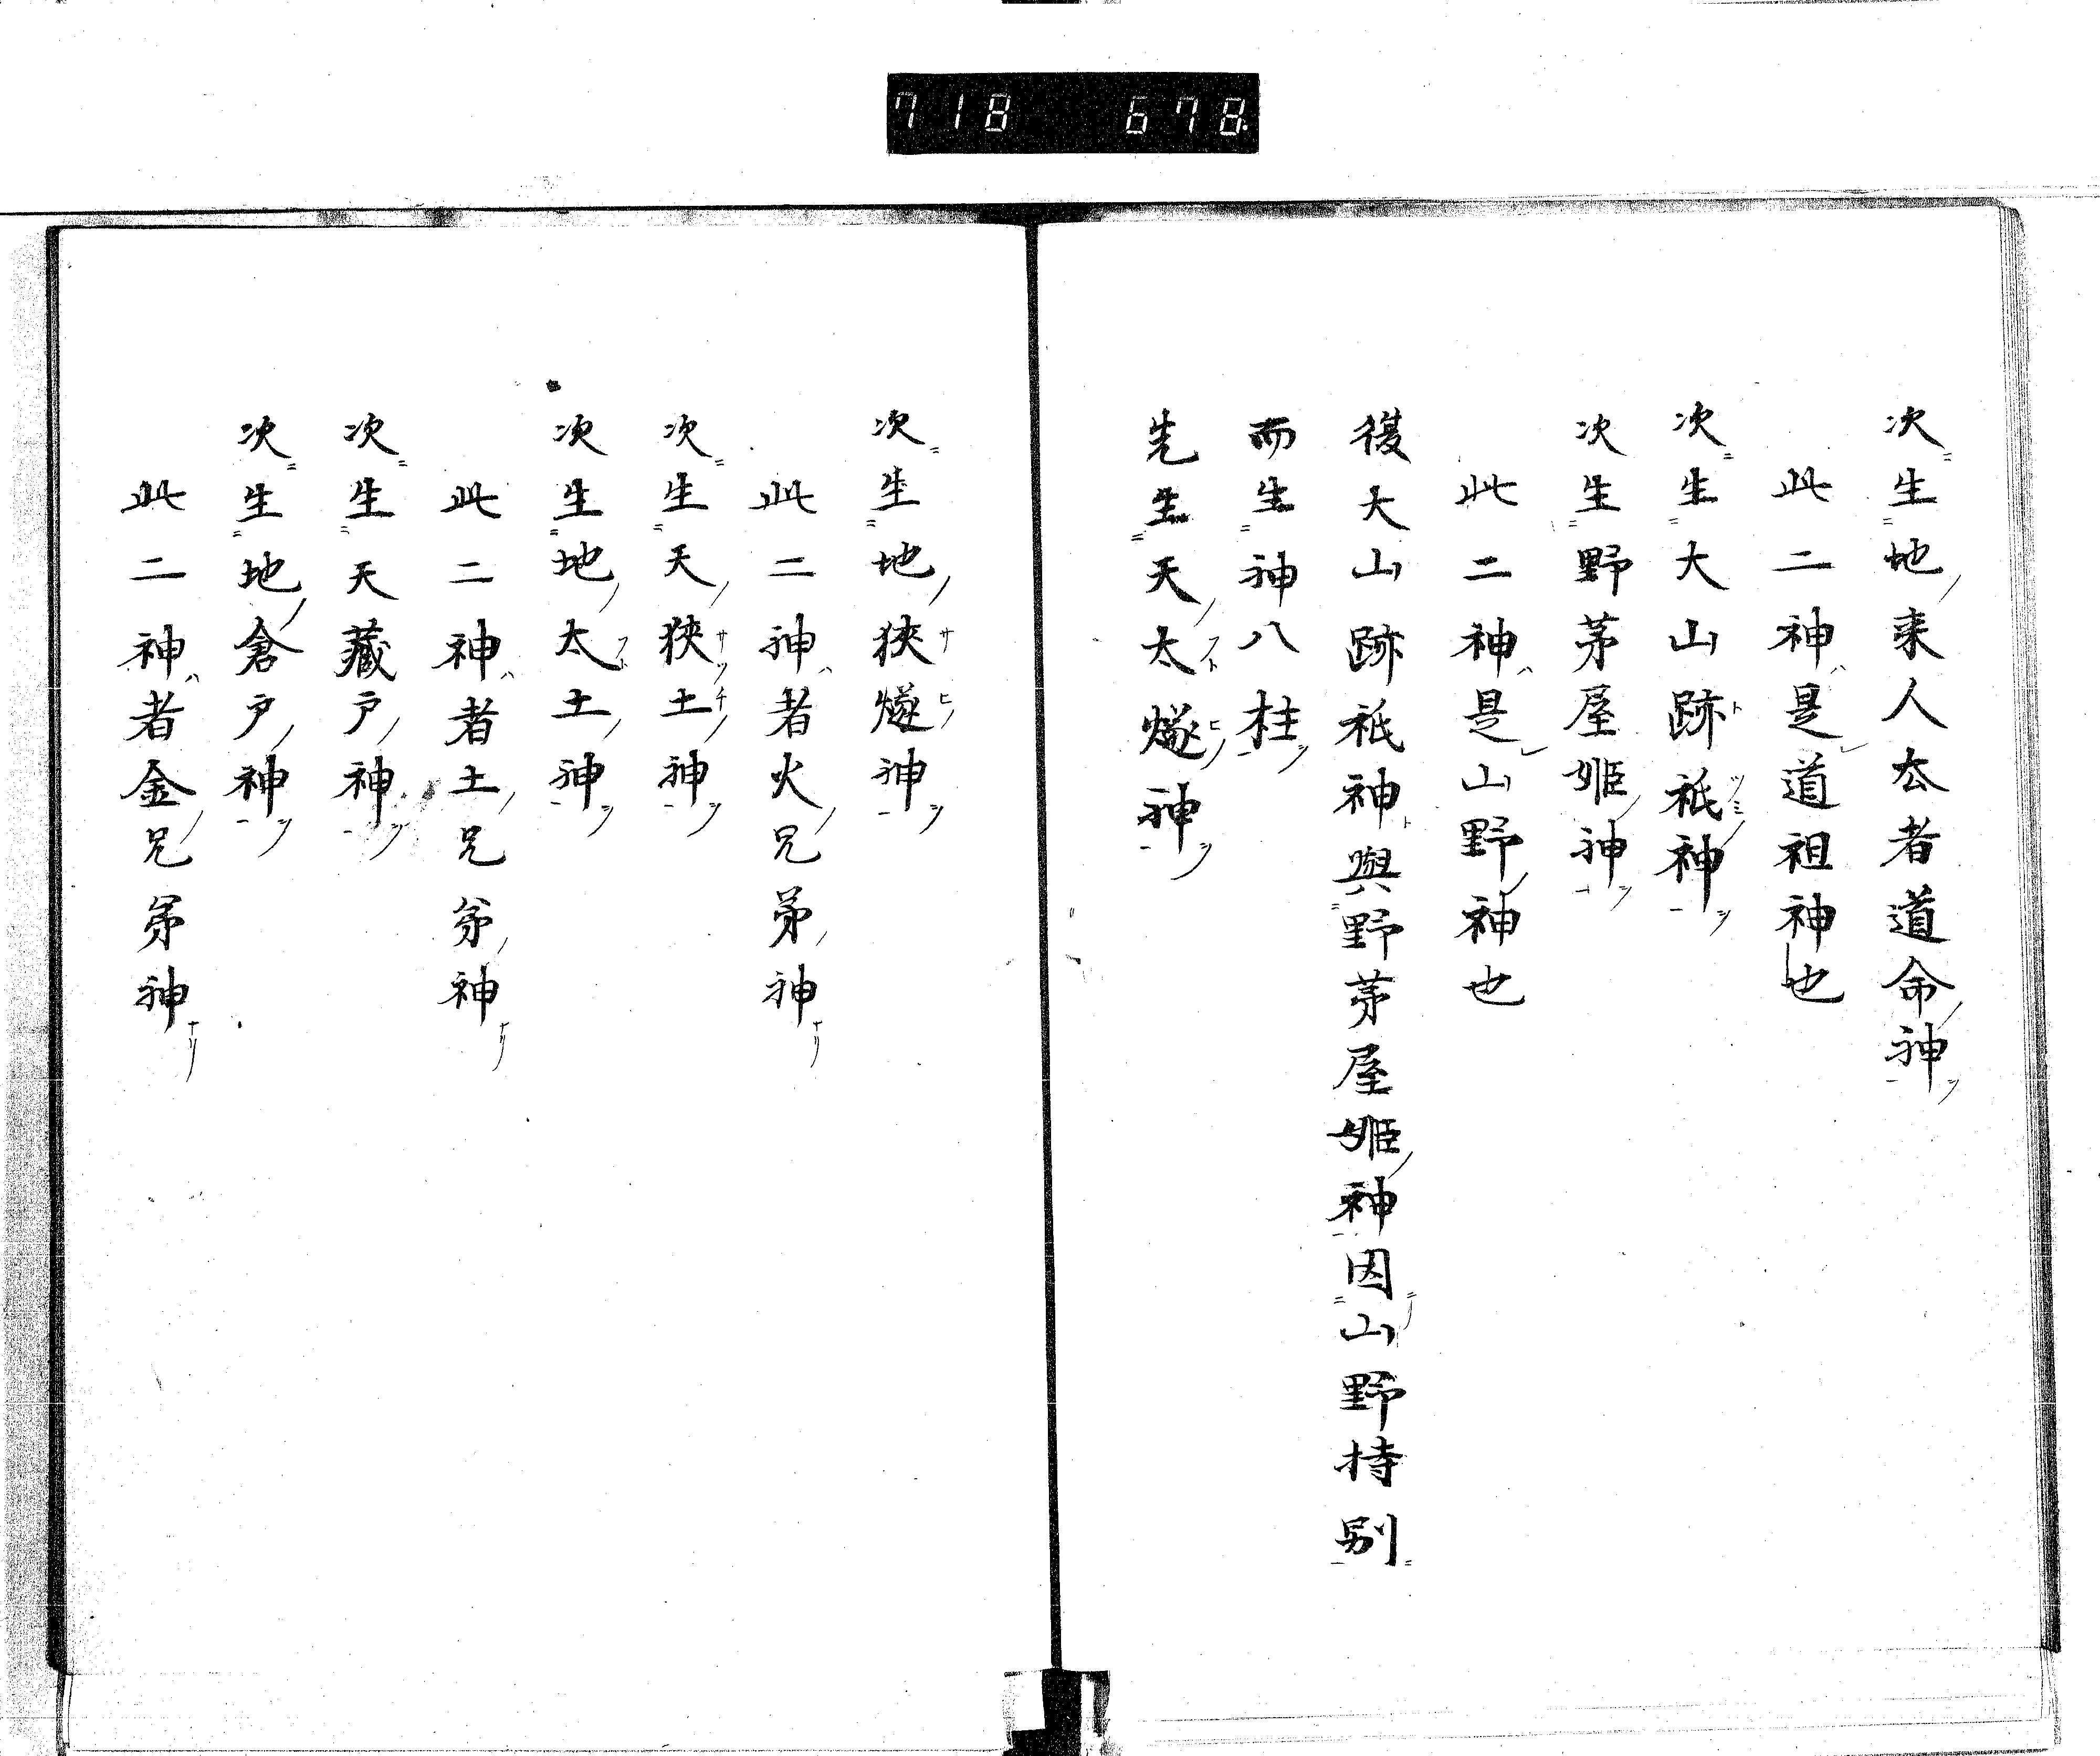 718 678
次生地来人厺者道命神
此二神是道祖神也
次生大山跡祇神
次生野茅屋姫神
此二神是山野神也
復大山跡祇神與野茅屋姫神因山野持別
而生神八柱
先生天太燧神
次生地狭燧神
此二神者火兄弟神
次生天狭土神
次生地太土神
此二神者土兄弟神
次生天藏戸神
次生地倉戸神
此二神者金兄弟神